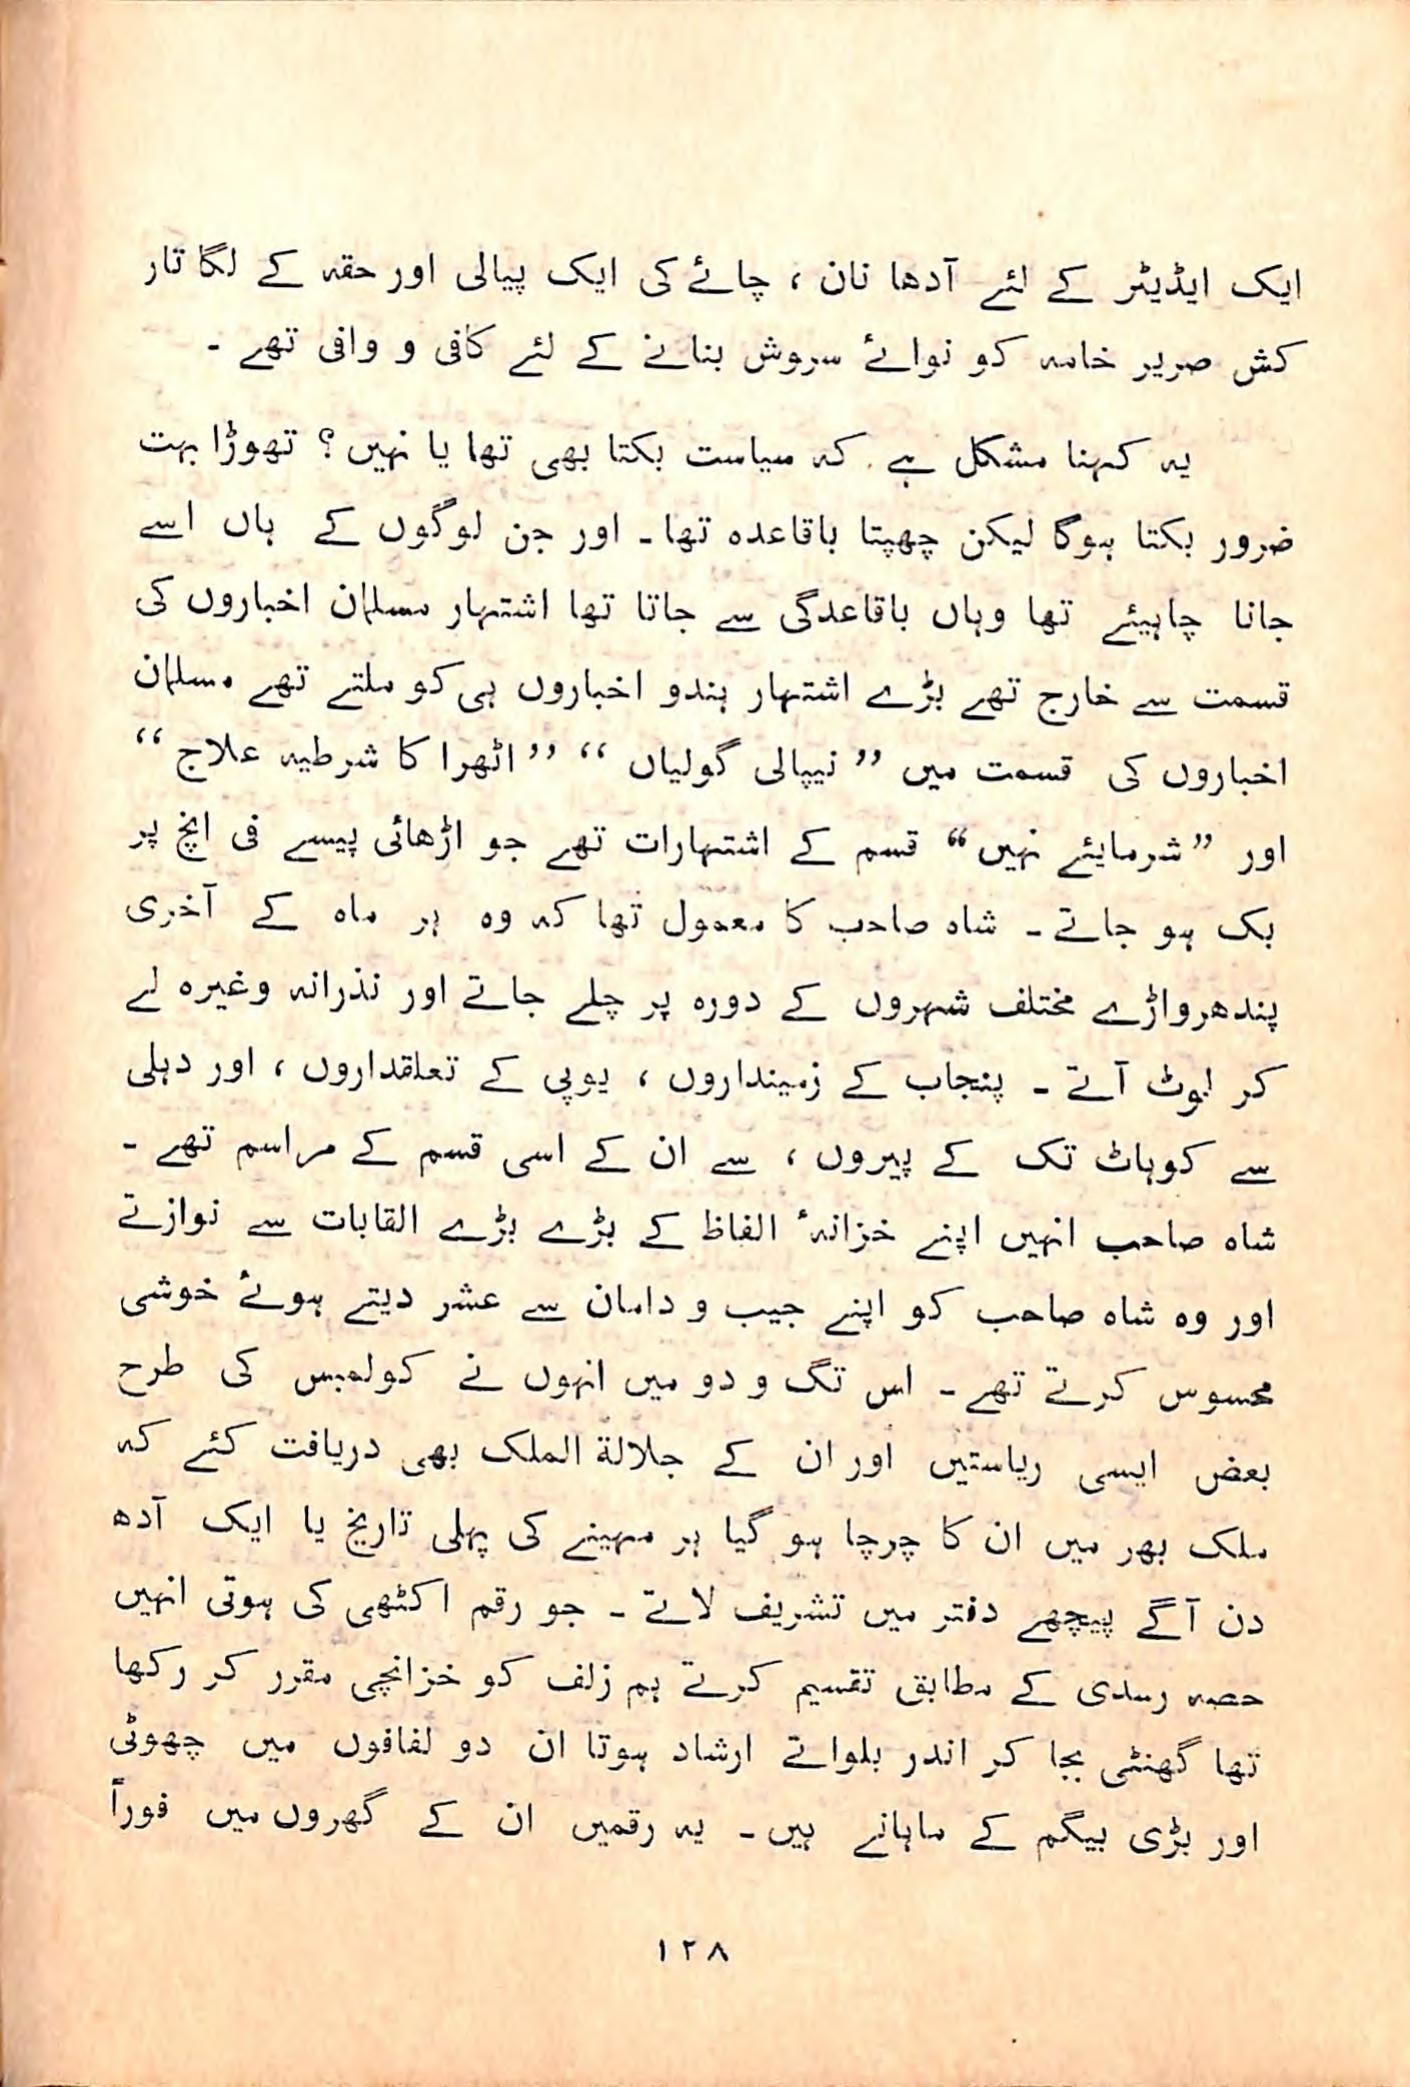 ایک ایڈیٹر کے لئے آدھا نان ، چائے کی ایک پیالی اور حقہ کے لگا تار
کش صریر خامہ کو نوائے سروش بنانے کے لئے کافی و وافی تھے ۔
یہ کہنا مشکل ہے کہ سیاست بکتا بھی تھا یا نہیں ؟ تھوڑا بہت
ضرور بکتا ہوگا لیکن چھپتا باقاعدہ تھا ۔ اور جن لوگوں کے ہاں اسے
جانا چاہیئے تھا وہاں باقاعدگی سے جاتا تھا اشتہار مسلمان اخباروں کی
قسمت سے خارج تھے بڑے اشتہار ہندو اخباروں ہی کو ملتے تھے مسلمان
اخباروں کی قسمت میں ”نیپالی گولیاں“ ”اٹھرا کا شرطیہ علاج“
اور ”شرمایئے نہیں“ قسم کے اشتہارات تھے جو اڑھائی پیسے فی انچ پر
بک ہو جاتے ۔ شاہ صاحب کا معمول تھا کہ وہ ہر ماہ کے آخری
پندھرواڑے مختلف شہروں کے دورہ پر چلے جاتے اور نذرانہ وغیرہ لے
کر لوٹ آتے ۔ پنجاب کے زمینداروں ، یوپی کے تعلقداروں ، اور دہلی
سے کوہاٹ تک کے پیروں ، سے ان کے اسی قسم کے مراسم تھے ۔
شاہ صاحب انہیں اپنے خزانہٴ الفاظ کے بڑے بڑے القابات سے نوازتے
اور وہ شاہ صاحب کو اپنے جیب و دامان سے عشر دیتے ہوئے خوشی
محسوس کرتے تھے ۔ اس تگ و دو میں انہوں نے کولمبس کی طرح
بعض ایسی ریاستیں اور ان کے جلالة الملک بھی دریافت کئے کہ
ملک بھر میں ان کا چرچا ہو گیا ہر مہینے کی پہلی تاریخ یا ایک آدھ
دن آگے پیچھے دفتر میں تشریف لاتے ۔ جو رقم اکٹھی کی ہوتی انہیں
حصہ رسدی کے مطابق تقسیم کرتے ہم زلف کو خزانچی مقرر کر رکھا
تھا گھنٹی بجا کر اندر بلواتے ارشاد ہوتا ان دو لفافوں میں چھوٹی
اور بڑی بیگم کے ماہانے ہیں ۔ یہ رقمیں ان کے گھروں میں فوراً
۱۲۸